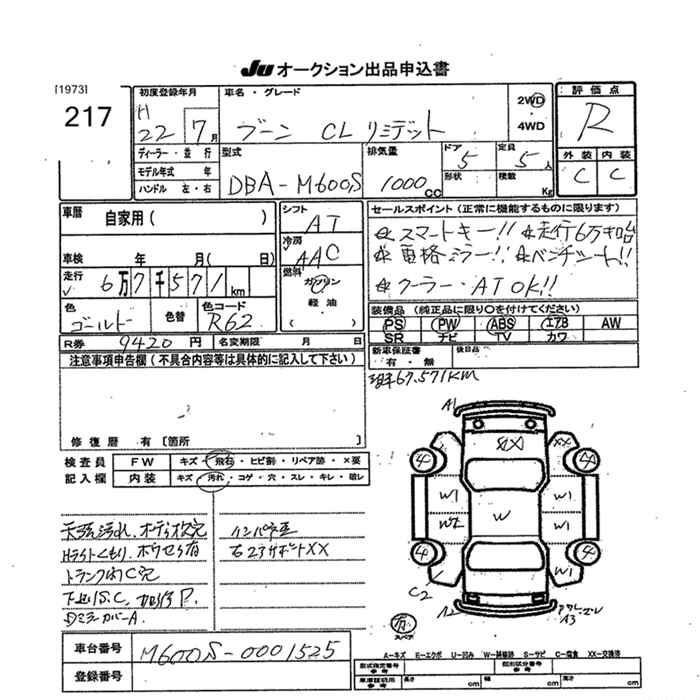 JU オークション出品申込書
[1973]
217
初度登録年月
H
22 年 7 月
車名・グレード
ブーン CL リミテッド
2WD
4WD
評価点
R
外装 内装
C C
ディーラー・並行
モデル年式 年
ハンドル 左・右
型式
DBA-M600S
排気量
1000 CC
ドア
5
形状
定員
5 人
積載
Kg
車歴
自家用( )
車検 年 月( 日)
走行
6万7千571km
色
ゴールド
色替
色コード
R62
シフト
AT
冷房
AAC
燃料
ガソリン
軽油
( )
セールスポイント(正常に機能するものに限ります)
☆スマートキー!! ☆走行6万キロ台
☆電格ミラー!! ☆ベンチシート!!
☆クーラー・AT OK!!
装備品(純正品に限り○を付けてください)
PS PW ABS エアB AW
SR ナビ TV カワ
新車保証書
有・無
後日品
R券 9420円
名変期限 月 日
注意事項申告欄(不具合内容等は具体的に記入して下さい)
修復歴 有[箇所 ]
現車67.571KM
検査員
記入欄
FW キズ・飛石・ヒビ割・リペア跡・×要
内装 キズ・汚れ・コゲ・穴・スレ・キレ・破レ
天張汚れ、
Hライトくもり、
トランク内C
下廻りS.C,
DミラーカバーA.
インパネ
XX
A1
XX XX
4 4
W1 W W1
W1
4 4
W1
C2
A2 A3
スペア
A-キズ E-エクボ U-凹み W-補修跡 S-サビ C-腐食 XX-交換済
車台番号 M600S-0001525
登録番号
型式指定番号
参考
類別区分番号
参考
車庫証明用
参考
長さ cm 幅 cm 高さ cm